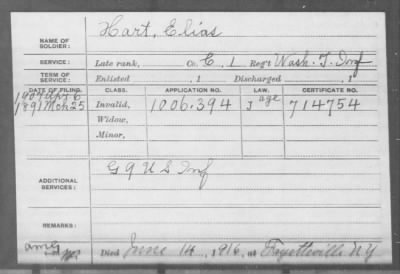 NAME OF SOLDIER: Hart, Elias
SERVICE: Late rank, Co. E, 1 Reg't Wash. T. Inf
TERM OF SERVICE: Enlisted , 1 Discharged , 1
DATE OF FILING. CLASS. APPLICATION NO. LAW. CERTIFICATE NO.
1907 Apr 6 age
1891 Mch 25 Invalid, 1006.394 J 714754
Widow,
Minor,
ADDITIONAL SERVICES: G 9 U S Inf
REMARKS:
Died June 14, 1916, at Fayetteville NY